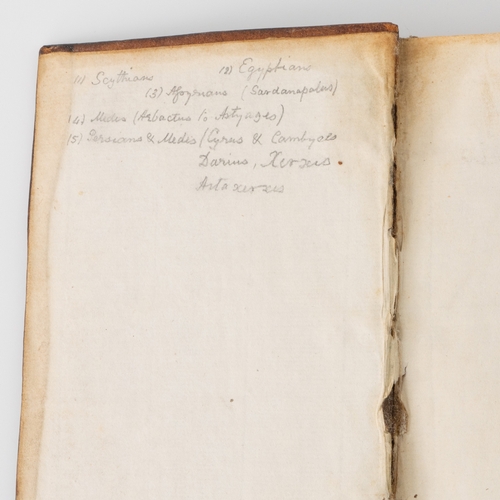 (1) Scythians (2) Egyptians
(3) Assyrians (Sardanapalus)
(4) Medes (Arbactus to Astyages)
(5) Persians & Medes (Cyrus & Cambyses
Darius, Xerxes.
Artaxerxes